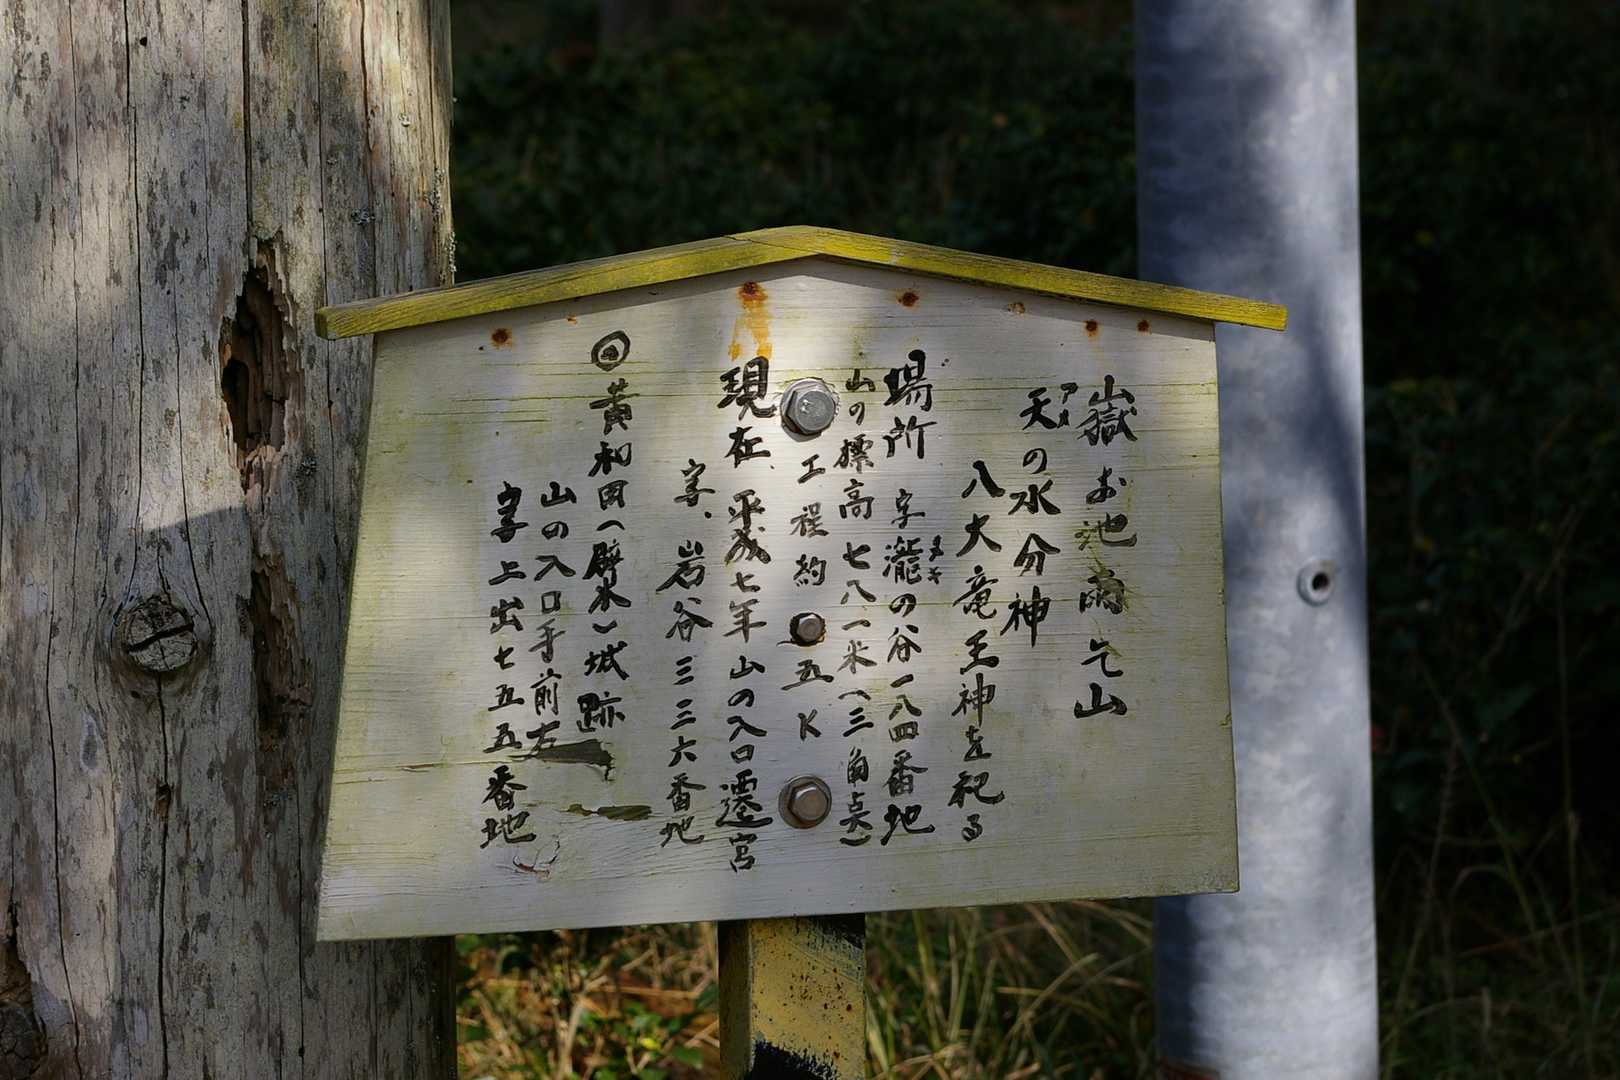 嶽お池雨乞山
天の水分神
アメ
八大竜王神を祀る
場所 字瀧の谷一八四番地
タキ
山の標高七八一米(三角点)
工程約五K
現在、平成七年山の入口遷宮
字、岩谷三三六番地
◎黄和田(辟水)城跡
山の入口手前左
字上出七五五番地